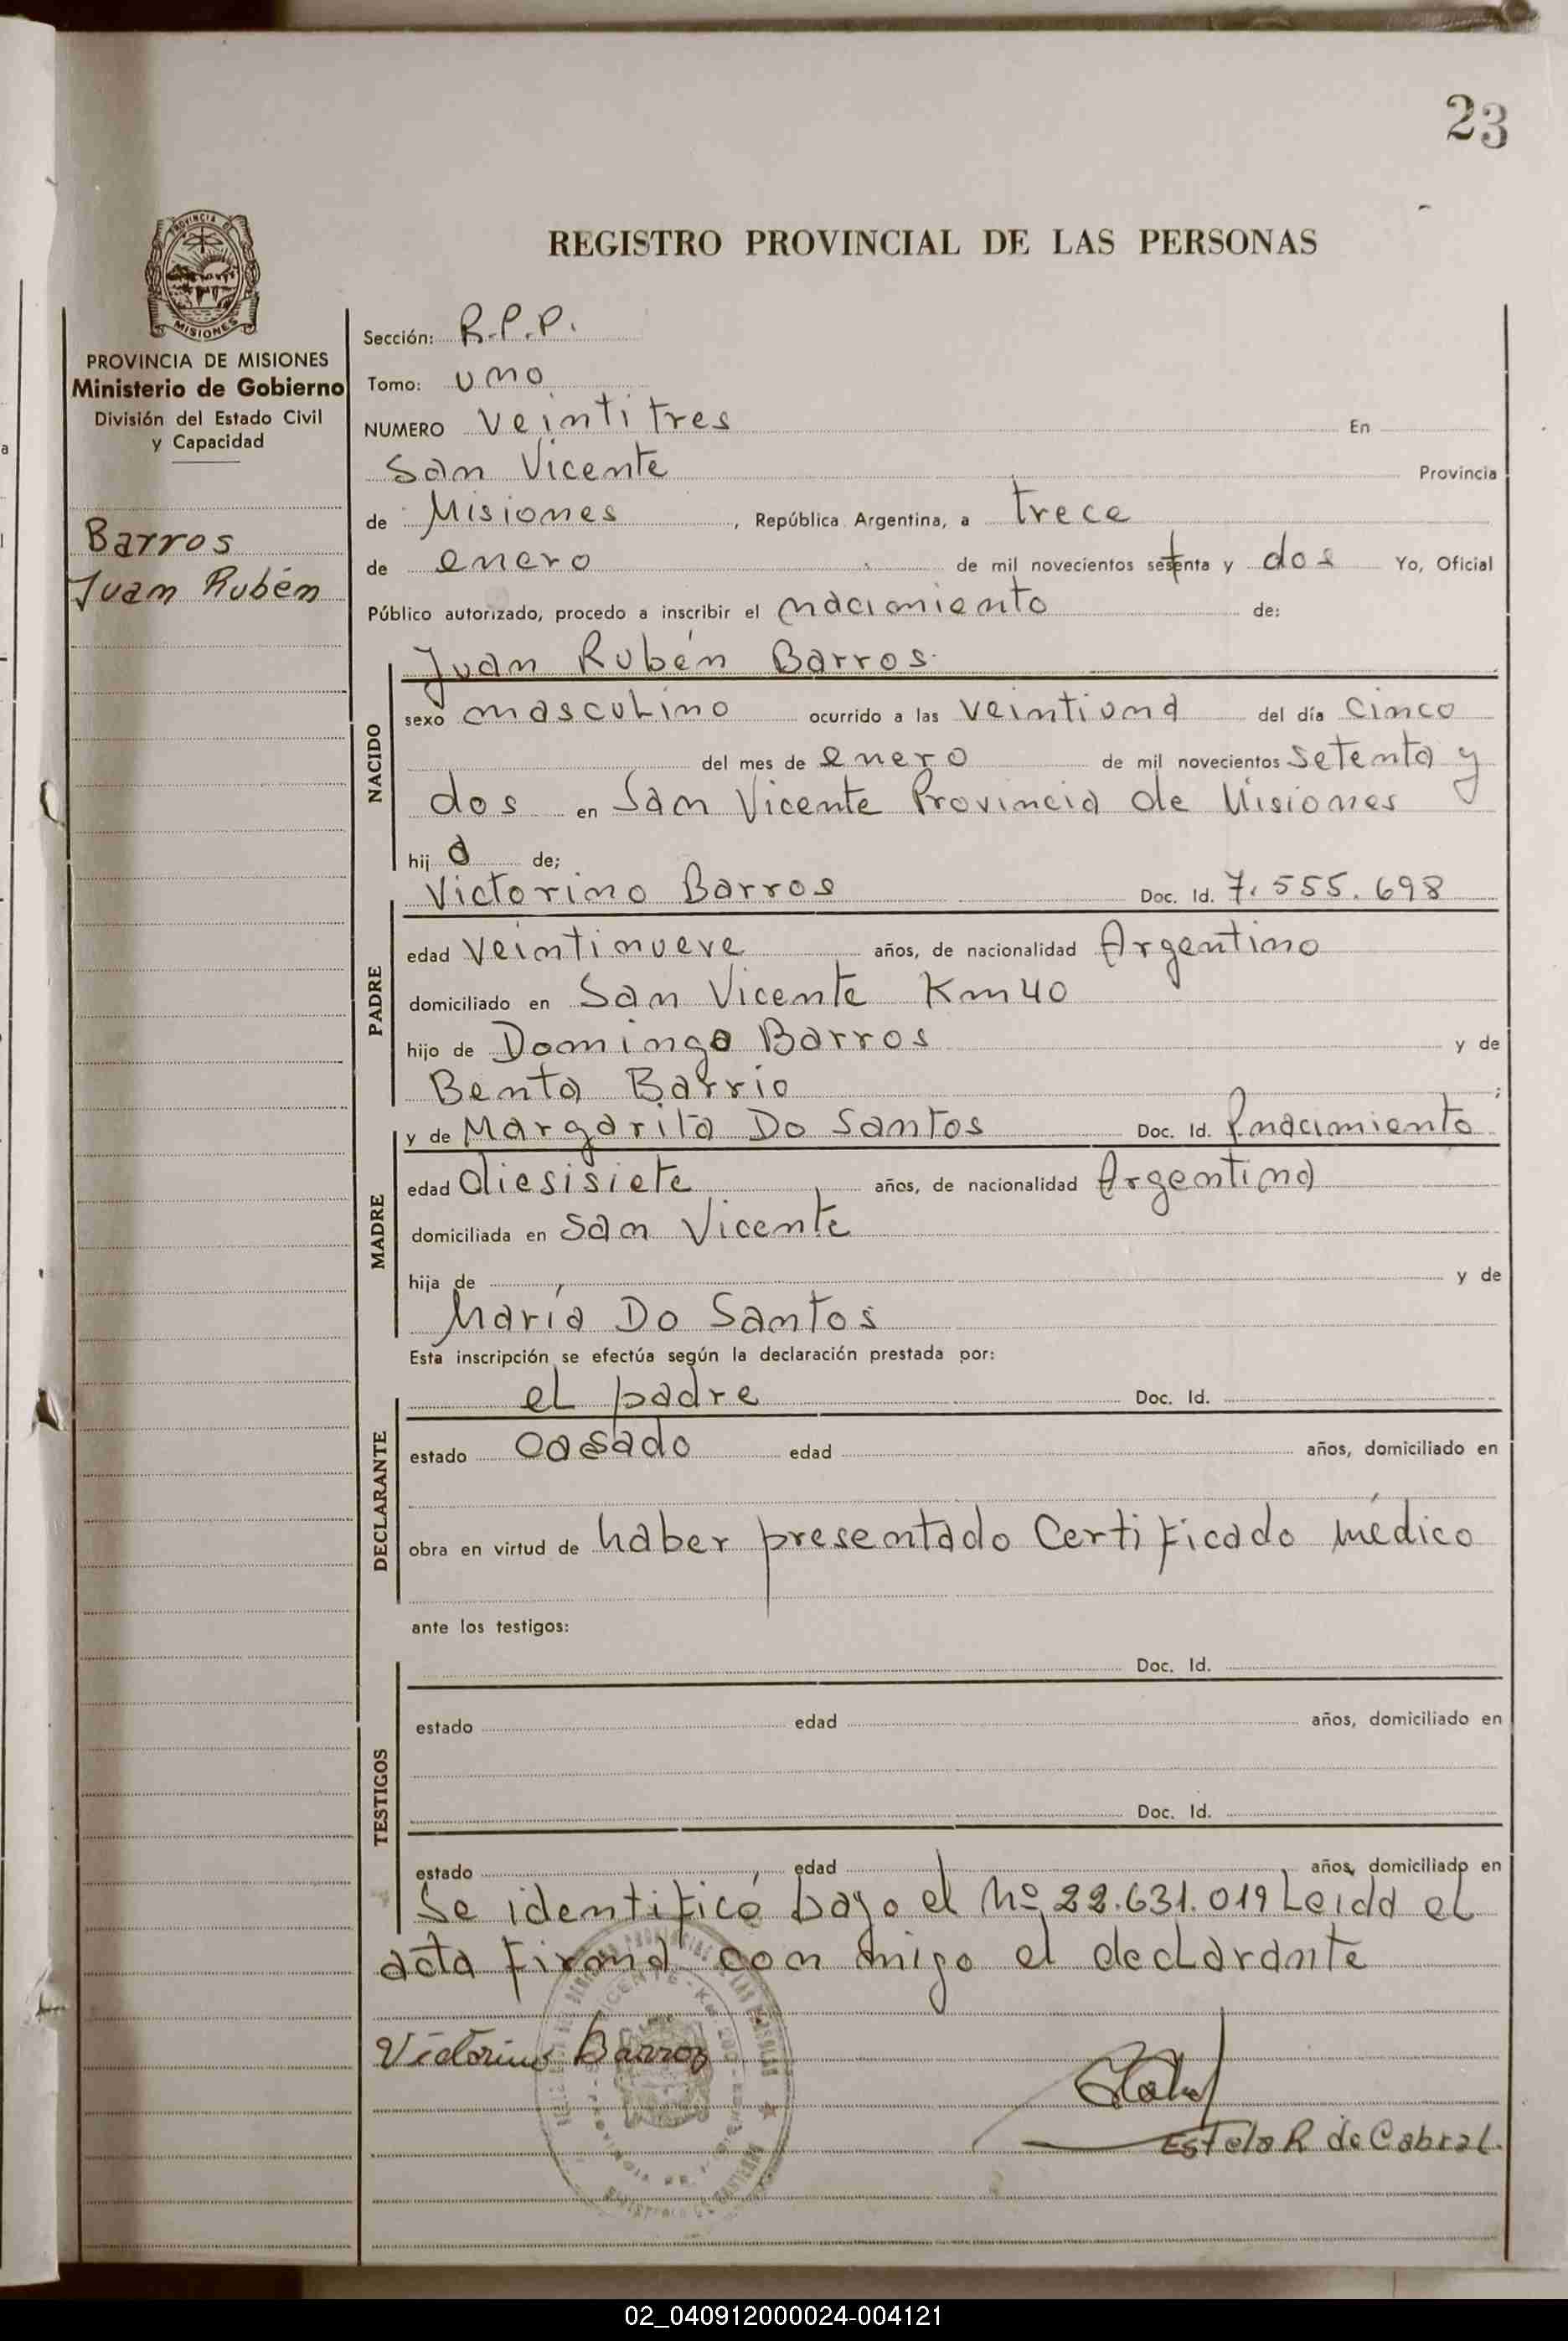 23
PROVINCIA DE
MISIONES
PROVINCIA DE MISIONES
Ministerio de Gobierno
División del Estado Civil
y Capacidad
Barros
Juan Rubén
REGISTRO PROVINCIAL DE LAS PERSONAS
Sección: R.P.P.
Tomo: uno
NUMERO veintitres En
San Vicente Provincia
de Misiones, República Argentina, a trece
de enero de mil novecientos setenta y dos Yo, Oficial
Público autorizado, procedo a inscribir el nacimiento de:
NACIDO
Juan Rubén Barros
sexo masculino ocurrido a las veintiuna del día cinco
del mes de enero de mil novecientos setenta y
dos en San Vicente Provincia de Misiones
hijo de;
PADRE
Victorino Barros Doc. Id. 7.555.698
edad veintinueve años, de nacionalidad Argentino
domiciliado en San Vicente Km 40
hijo de Domingo Barros y de
Benta Barrio ;
MADRE
y de Margarita Do Santos Doc. Id. P.nacimiento
edad diesisiete años, de nacionalidad Argentina
domiciliada en San Vicente
hija de y de
María Do Santos
Esta inscripción se efectúa según la declaración prestada por:
DECLARANTE
el padre Doc. Id.
estado casado edad años, domiciliado en
obra en virtud de haber presentado Certificado médico
ante los testigos:
TESTIGOS
Doc. Id.
estado edad años, domiciliado en
Doc. Id.
estado edad años, domiciliado en
Se identificó bajo el Nº 22.631.019 Leida el
acta firma con migo el declarante
Victorino Barros
Estela R de Cabral.
02_040912000024-004121